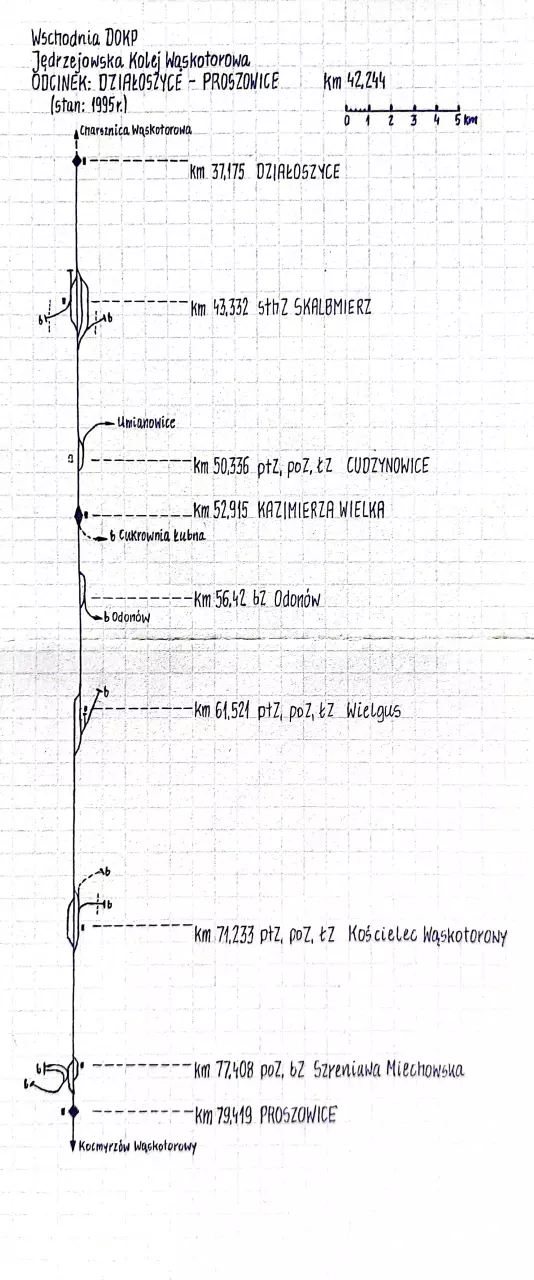 Wschodnia DOKP
Jędrzejowska Kolej Wąskotorowa
ODCINEK: DZIAŁOSZYCE - PROSZOWICE km 42,244
(stan: 1995r.)
0 1 2 3 4 5 km
Charsznica Wąskotorowa
km 37,175 DZIAŁOSZYCE
km 43,332 sthZ SKALBMIERZ
b b
Umianowice
km 50,336 ptZ, poZ, łZ CUDZYNOWICE
km 52,915 KAZIMIERZA WIELKA
b Cukrownia Łubna
km 56,42 bZ Odonów
b Odonów
b
km 61,521 ptZ, poZ, łZ Wielgus
b
b
km 71,233 ptZ, poZ, łZ Kościelec Wąskotorowy
b
km 77,408 poZ, bZ Szreniawa Miechowska
b
km 79,419 PROSZOWICE
Kocmyrzów Wąskotorowy